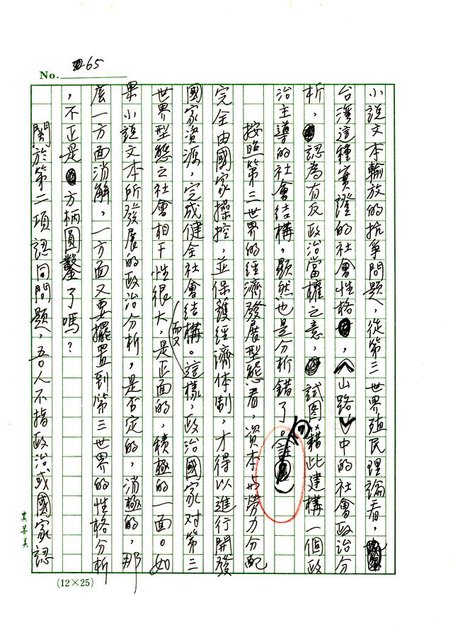 No. 65
小說文本輸放的抗爭問題，從第三世界殖民理論看，
台灣這種實證的社會性格，〈山路〉中的社會政治分
析，認為有反政治當權之意，試圖藉此建構一個政
治主導的社會結構，顯然也是分析錯了。
按照第三世界的經濟發展型態看，資本与勞力分配
完全由國家操控，並保護經濟体制，才得以進行開發
國家資源，完成健全社會結構。這樣，政治國家对第三
世界型態之社會相干性很大，是正面的，積極的一面。如
果小說文本所發展的政治分析，是否定的，消極的，那
麼一方面消解，一方面又要擺置到第三世界的性格分析
，不正是方柄圓鑿了嗎？
關於第二項認同問題，吾人不指政治或國家認
(12×25)